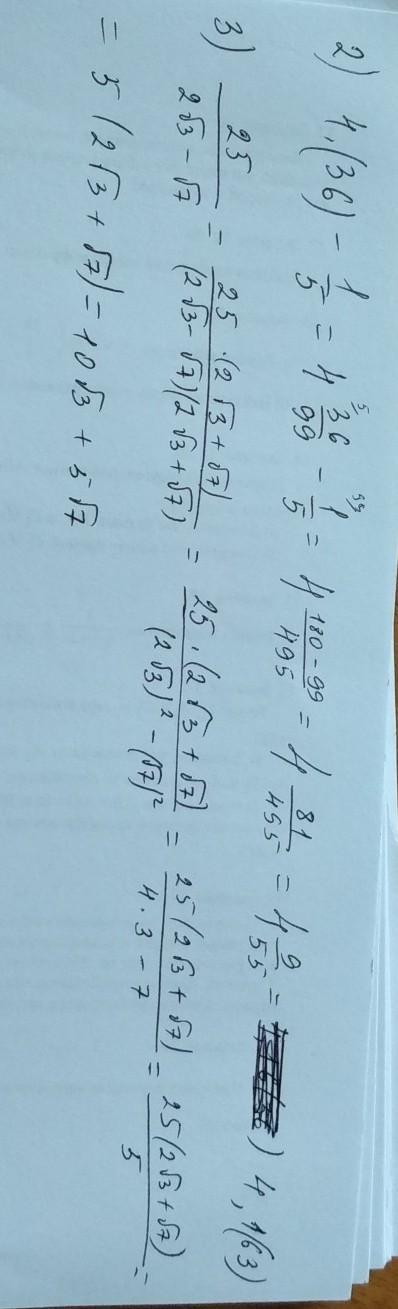 2) 4,(36) - 1/5 = 4 36/99 - 1/5 = 4 (180-99)/495 = 4 81/495 = 4 9/55 = ) 4,1(63)
3) 25/(2√3 - √7) = 25·(2√3 + √7)/((2√3 - √7)(2√3 + √7)) = 25·(2√3 + √7)/((2√3)² - (√7)²) = 25(2√3 + √7)/(4·3 - 7) = 25(2√3 + √7)/5 =
= 5(2√3 + √7) = 10√3 + 5√7